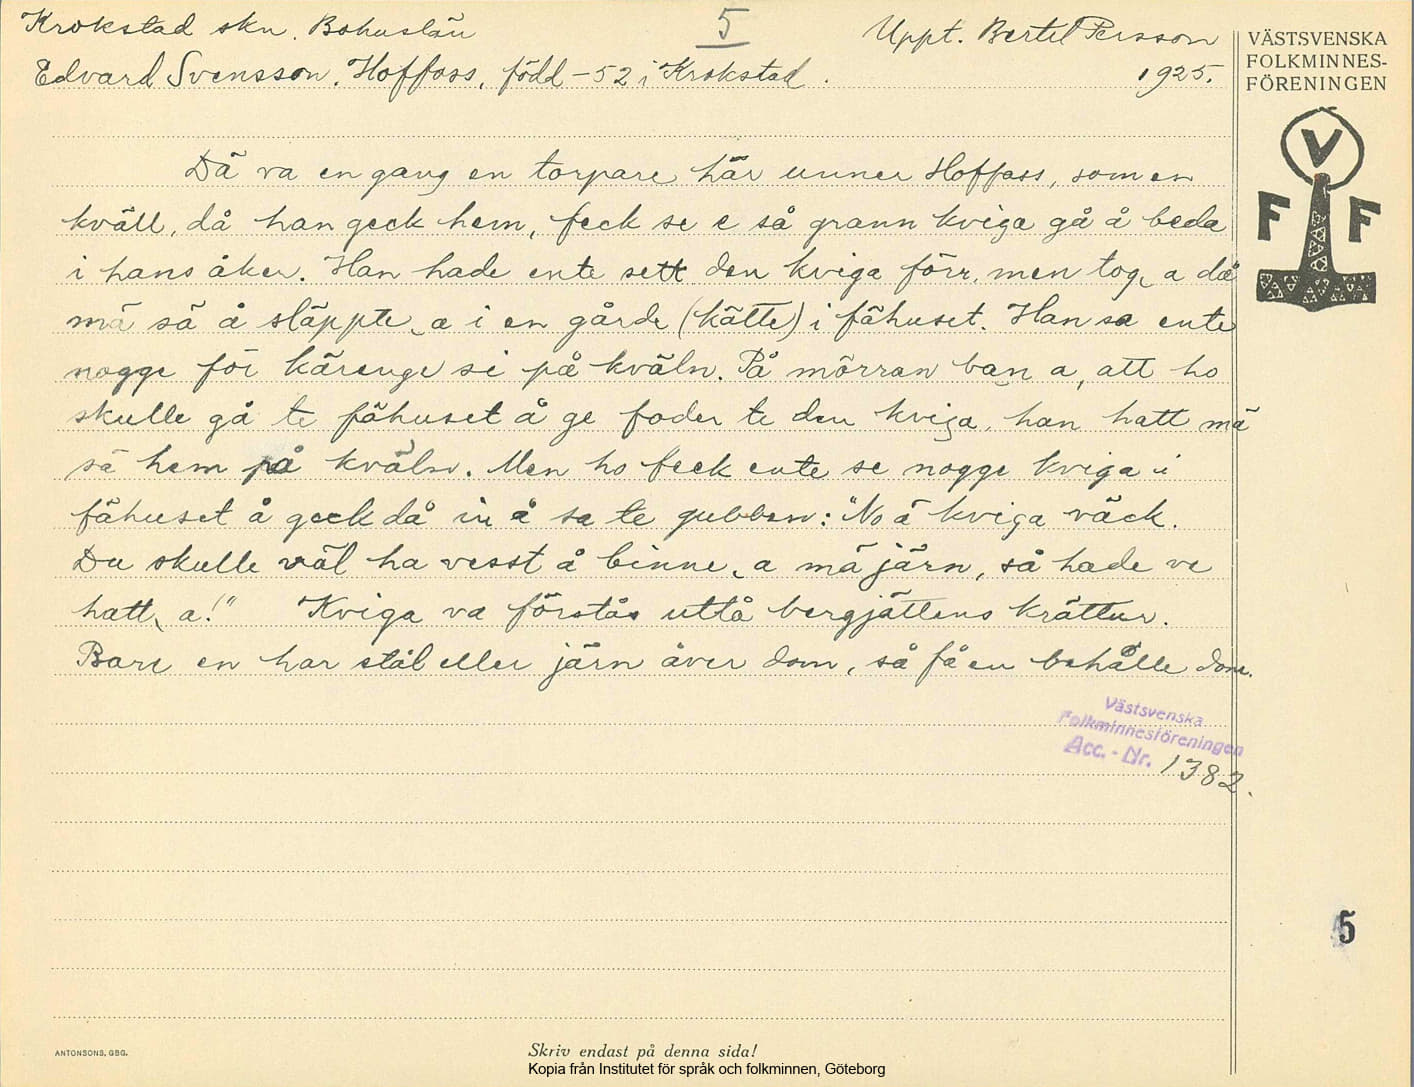 Krokstad skn. Bohuslän
5
Uppt. Bertel Persson
1925.
Edvard Svensson, Hoffass, född -52 i Krokstad.
VÄSTSVENSKA
FOLKMINNES-
FÖRENINGEN
V
F F
Dä va en gang en torpare här unner Hoffass, som en
kväll, då han geck hem, feck se e så grann kviga gå å beda
i hans åker. Han hade ente sett den kviga förr, men tog a då
mä sä å släppte a i en gårde (kätte) i fähuset. Han sa ente
nogge för käringe si på kväln. På mörran ban a, att ho
skulle gå te fähuset å ge foder te den kviga, han hatt mä
sä hem på kväln. Men ho feck ente se nogge kviga i
fähuset å geck då in å sa te gubben: "No ä kviga väck.
Du skulle väl ha vesst å binne a mä järn, så hade ve
hatt a!" Kviga va förstås uttå bergjättens krättur.
Bare en har stål eller järn över dom, så få en behålle dom.
Västsvenska
Folkminnesföreningen
Acc. - Nr. 1382.
5
ANTONSONS, GBG.
Skriv endast på denna sida!
Kopia från Institutet för språk och folkminnen, Göteborg